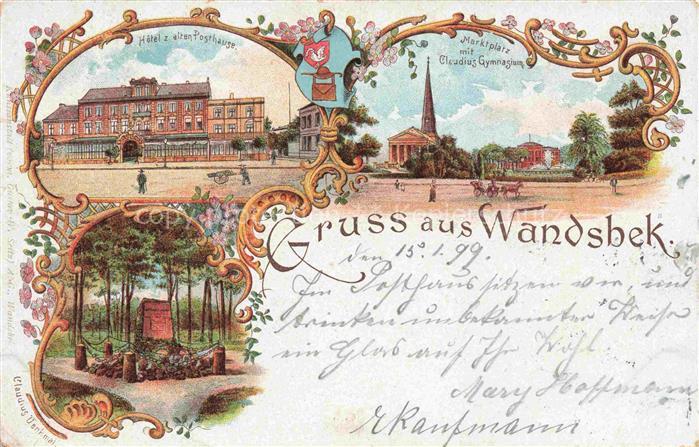 Hôtel z. alten Posthause.
Marktplatz
mit
Claudius Gymnasium
Gruss aus Wandsbek.
den 15. 1. 99.
Im Posthaus sitzen wir, und
trinken unbekannter Weise
ein Glas auf Ihr Wohl.
Mary Hoffmann
E Kaufmann
Claudius Denkmal